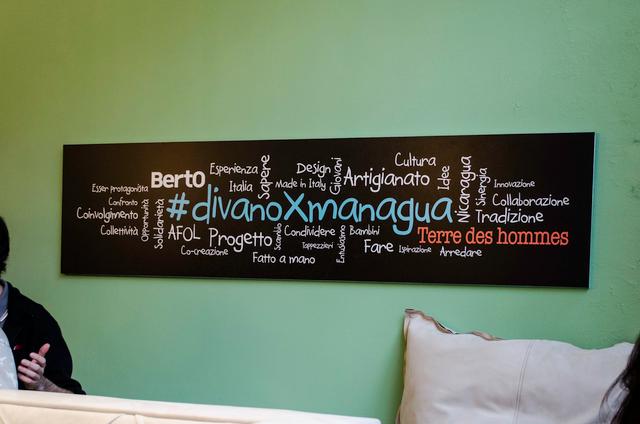 Cultura
Esperienza
Sapere
Design
Giovani
BertO
Artigianato
Idee
Nicaragua
Sinergia
Innovazione
Esser protagonista
Italia
Made in Italy
Confronto
Opportunità
Solidarietà
#divanoXmanagua
Collaborazione
Coinvolgimento
Tradizione
Collettività
AFOL
Progetto
Scambio
Condividere
Entusiasmo
Bambini
Terre des hommes
Co-creazione
Tappezzieri
Fare
Ispirazione
Arredare
Fatto a mano